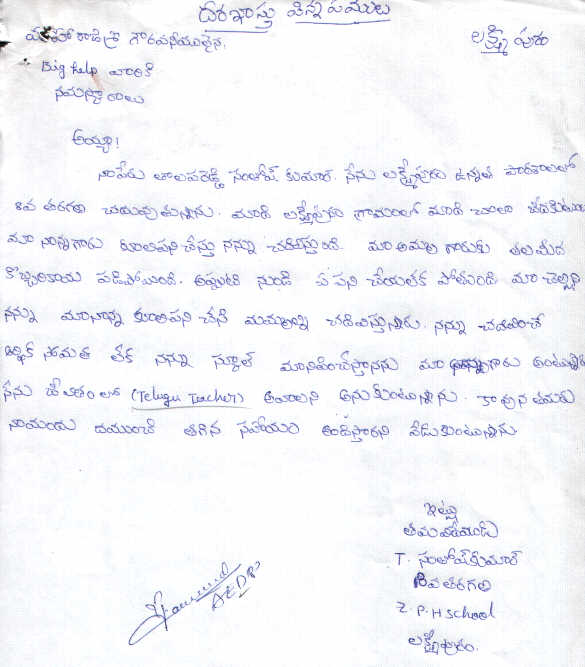 దరఖాస్తు విన్నపములు
లక్ష్మీ పురం
మహారాజశ్రీ గౌరవనీయులైన,
Big help వారికి
నమస్కారాలు
అయ్యా!
నాపేరు తాలపరెడ్డి సంతోష్ కుమార్. నేను లక్ష్మీపురం ఉన్నత పాఠశాలలో
8వ తరగతి చదువుతున్నాను. మాది లక్ష్మీపురం గ్రామంలో మాది చాలా పేదకుటుంబం
మా నాన్నగారు కూలిపని చేస్తు నన్ను చదివిస్తుంది. మా అమ్మ గారుకు తలమీద
కొబ్బరికాయ పడిపోయింది. అప్పటి నుండి ఏ పని చేయలేక పోతుంది. మా చెల్లిని
నన్ను మానాన్న కూలిపని చేసి మమ్మల్ని చదివిస్తున్నారు. నన్ను చదివించే
ఆర్థిక స్తోమత లేక నన్ను స్కూల్ మానిపించేస్తానను మా నాన్నగారు అంటున్నారు
నేను జీవితం లో (Telugu Teacher) అవాలని అనుకుంటున్నాను. కావున తమరు
నాయందు దయుంచి తగిన సహాయం అందిస్తారని వేడుకుంటున్నాను
ఇట్లు
తమ విధేయుడు
T. సంతోష్‌కుమార్
8వ తరగతి
Z.P.H school
లక్ష్మీపురం.